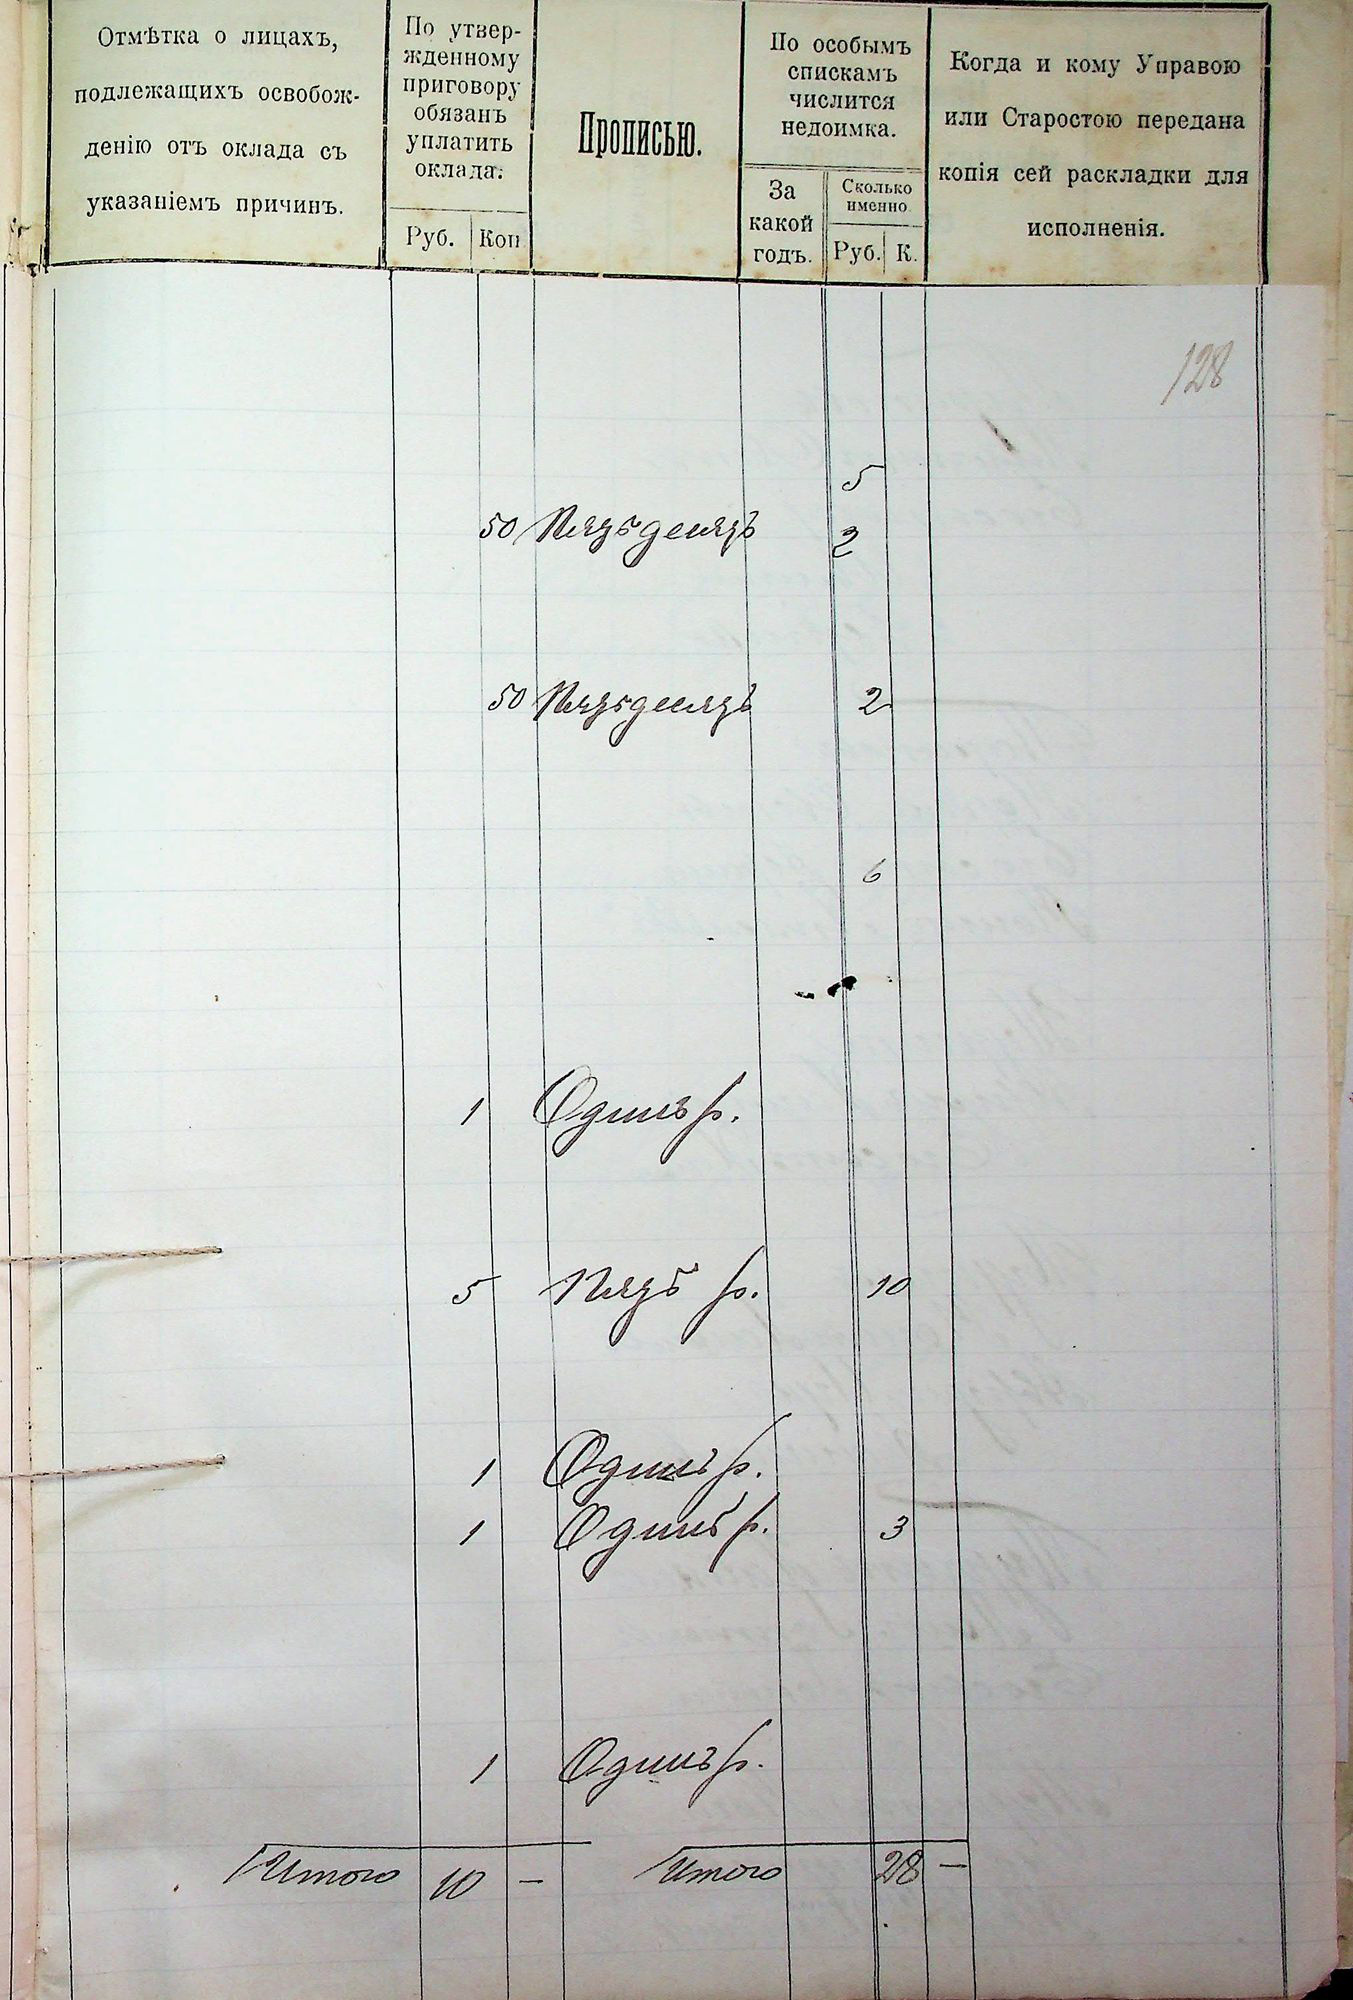 Отмѣтка о лицахъ,
подлежащихъ освобож-
денію отъ оклада съ
указаніемъ причинъ.
По утвер-
жденному
приговору
обязанъ
уплатить
оклада:
Руб. Коп
Прописью.
По особымъ
спискамъ
числится
недоимка.
За
какой
годъ.
Сколько
именно
Руб. К.
Когда и кому Управою
или Старостою передана
копія сей раскладки для
исполненія.
128
5
50 Пятьдесятъ 2
50 Пятьдесятъ 2
6
1 Одинъ р.
5 Пять р. 10
1 Одинъ р.
1 Одинъ р. 3
1 Одинъ р.
Итого 10 — Итого 28 —